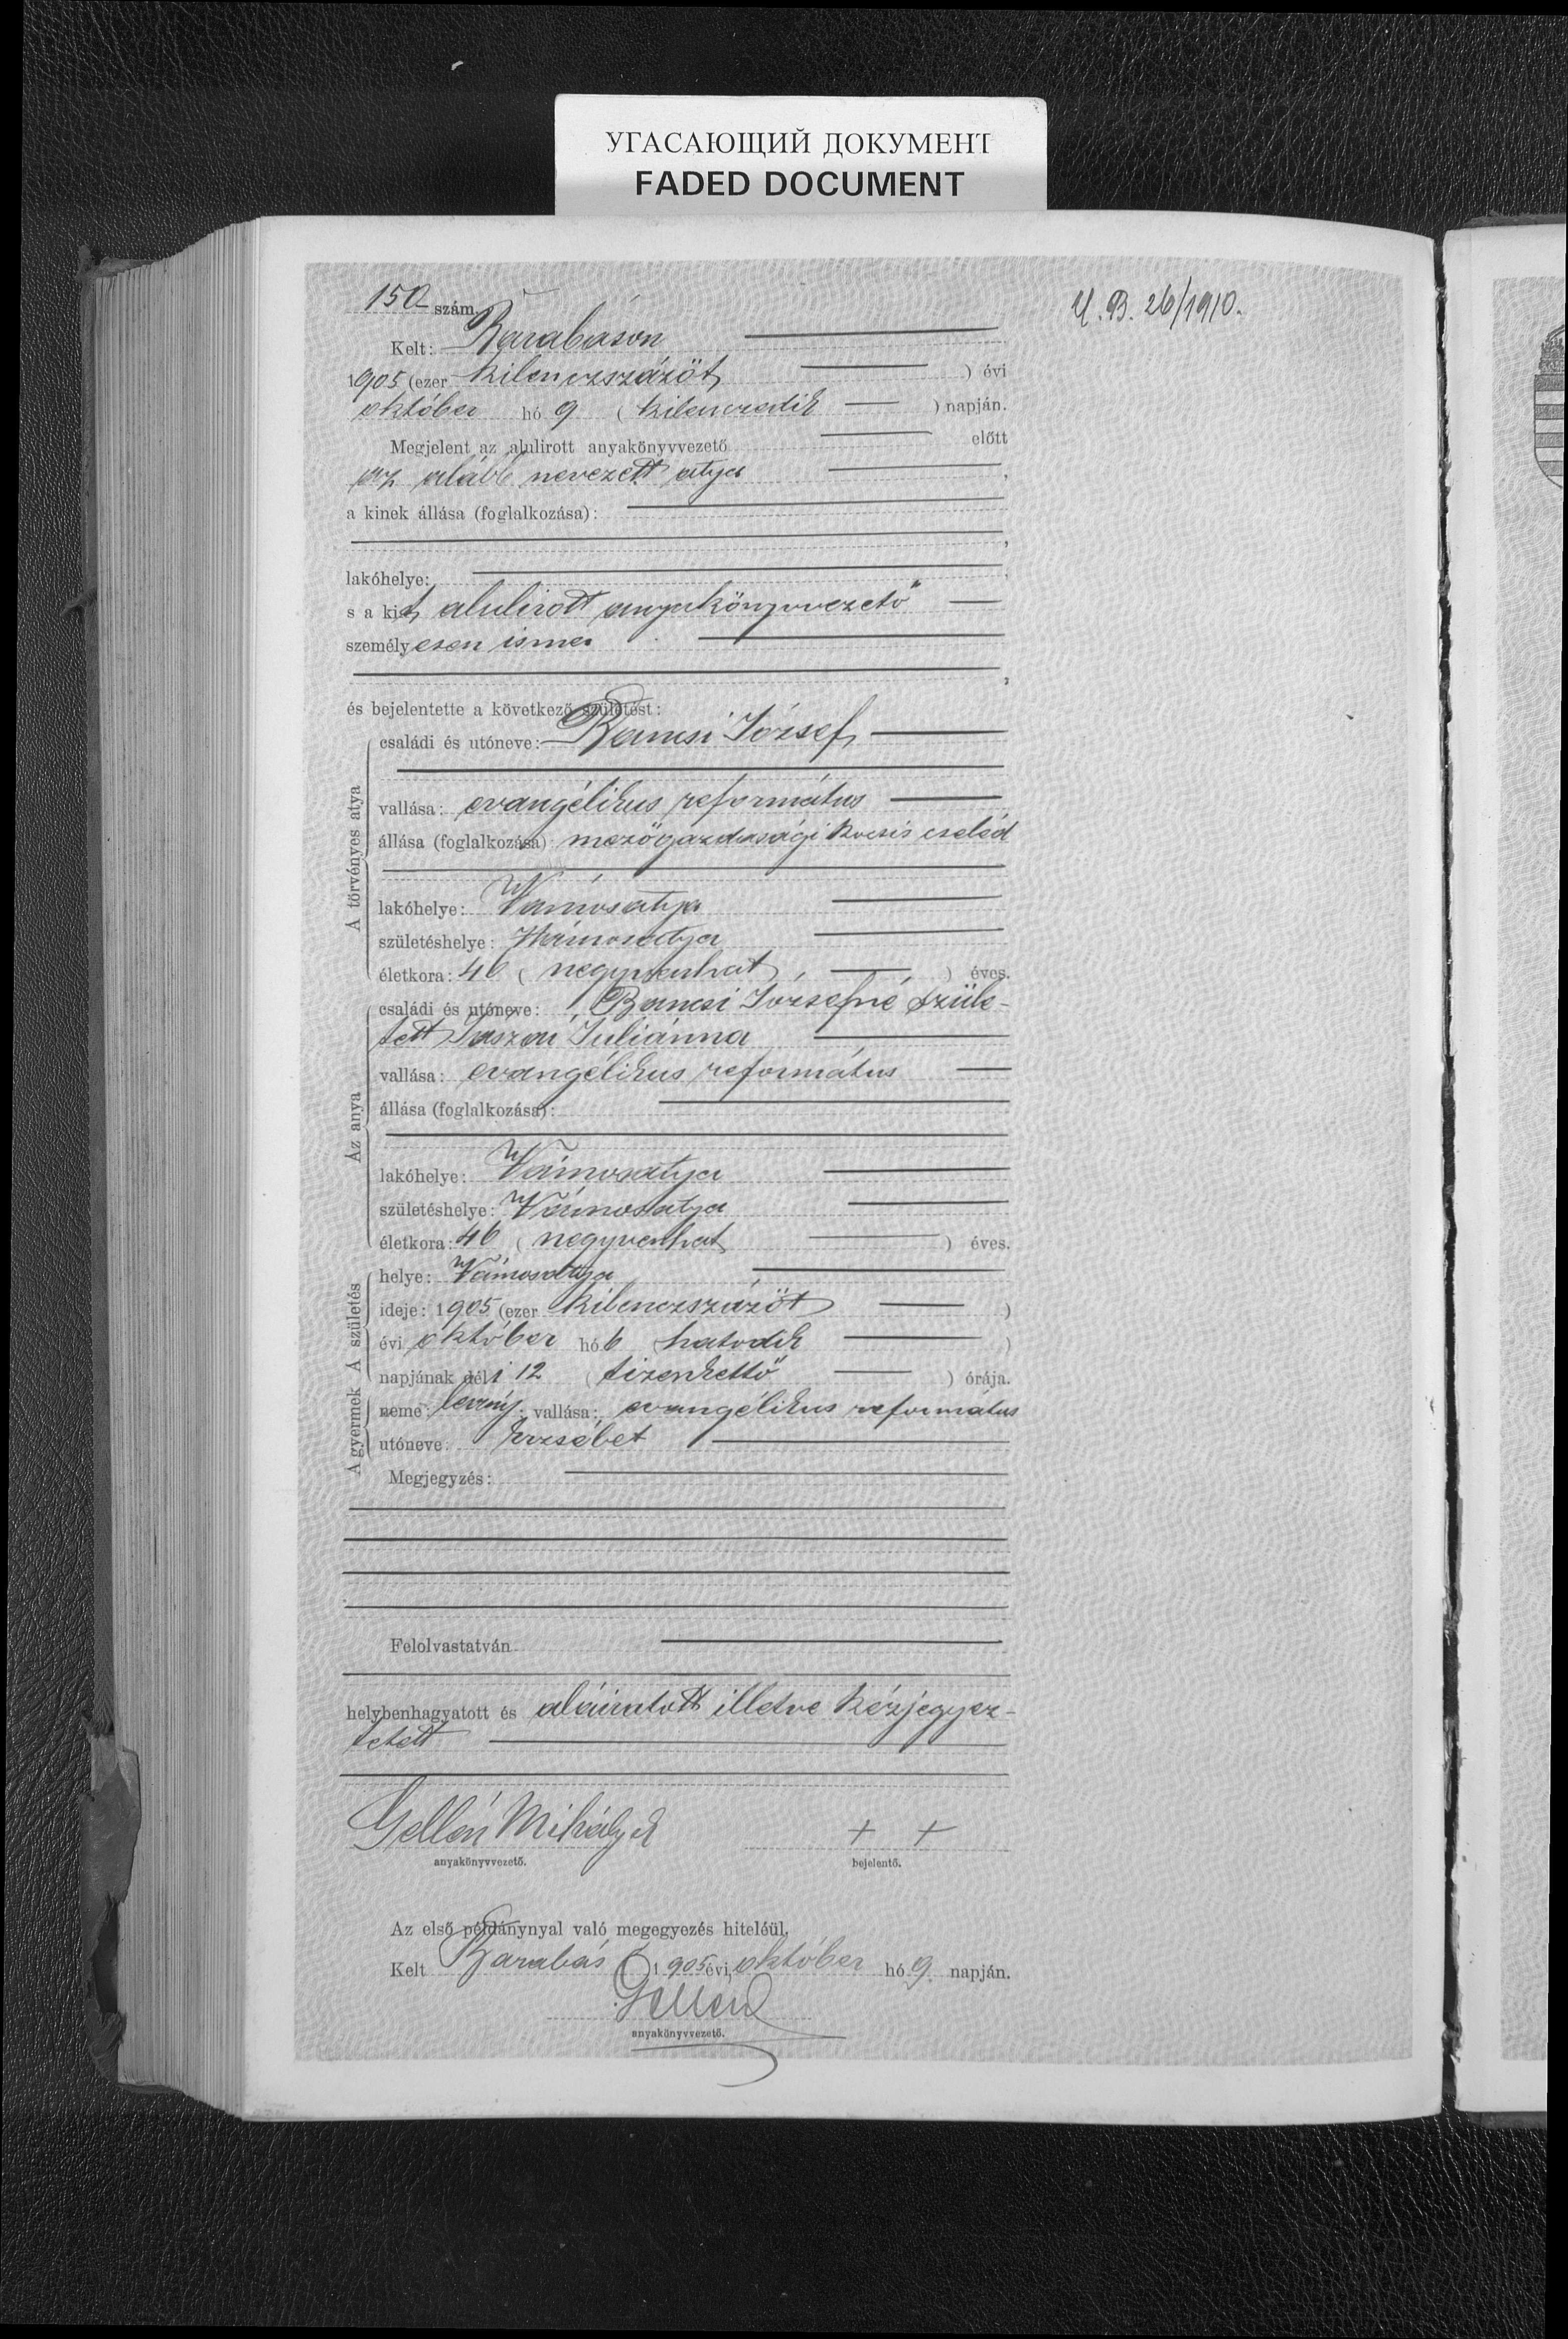 УГАСАЮЩИЙ ДОКУМЕНТ
FADED DOCUMENT
150 szám.
U. B. 26/1910.
Kelt: Barabáson
1905 (ezer kilenczszázöt ) évi
október hó 9 ( kilenczedik ) napján.
Megjelent az alulirott anyakönyvvezető előtt
az alább nevezett atya ,
a kinek állása (foglalkozása):
,
lakóhelye: ,
s a kit alulirott anyakönyvvezető
személyesen ismer
,
és bejelentette a következő születést:
A törvényes atya
családi és utóneve: Bancsi József
vallása: evangélikus református
állása (foglalkozása): mezőgazdasági kocsis cseléd
lakóhelye: Vámosatya
születéshelye: Vámosatya
életkora: 46 ( negyvenhat ) éves.
Az anya
családi és utóneve: Bancsi Józsefné szüle-
tett Juliánna
vallása: evangélikus református
állása (foglalkozása):
lakóhelye: Vámosatya
születéshelye: Vámosatya
életkora: 46 ( negyvenhat ) éves.
A születés
helye: Vámosatya
ideje: 1905 (ezer kilenczszázöt )
évi október hó 6 (hatodik )
napjának déli 12 ( tizenkettő ) órája.
A gyermek
neme: leány; vallása: evangélikus református
utóneve: Erzsébet
Megjegyzés:
Felolvastatván
helybenhagyatott és aláiratott illetve kézjegyez-
tetett
Gellén Mihály + +
anyakönyvvezető. bejelentő.
Az első példánynyal való megegyezés hiteléül.
Kelt Barabás 1905 évi október hó 9. napján.
Gellén
anyakönyvvezető.